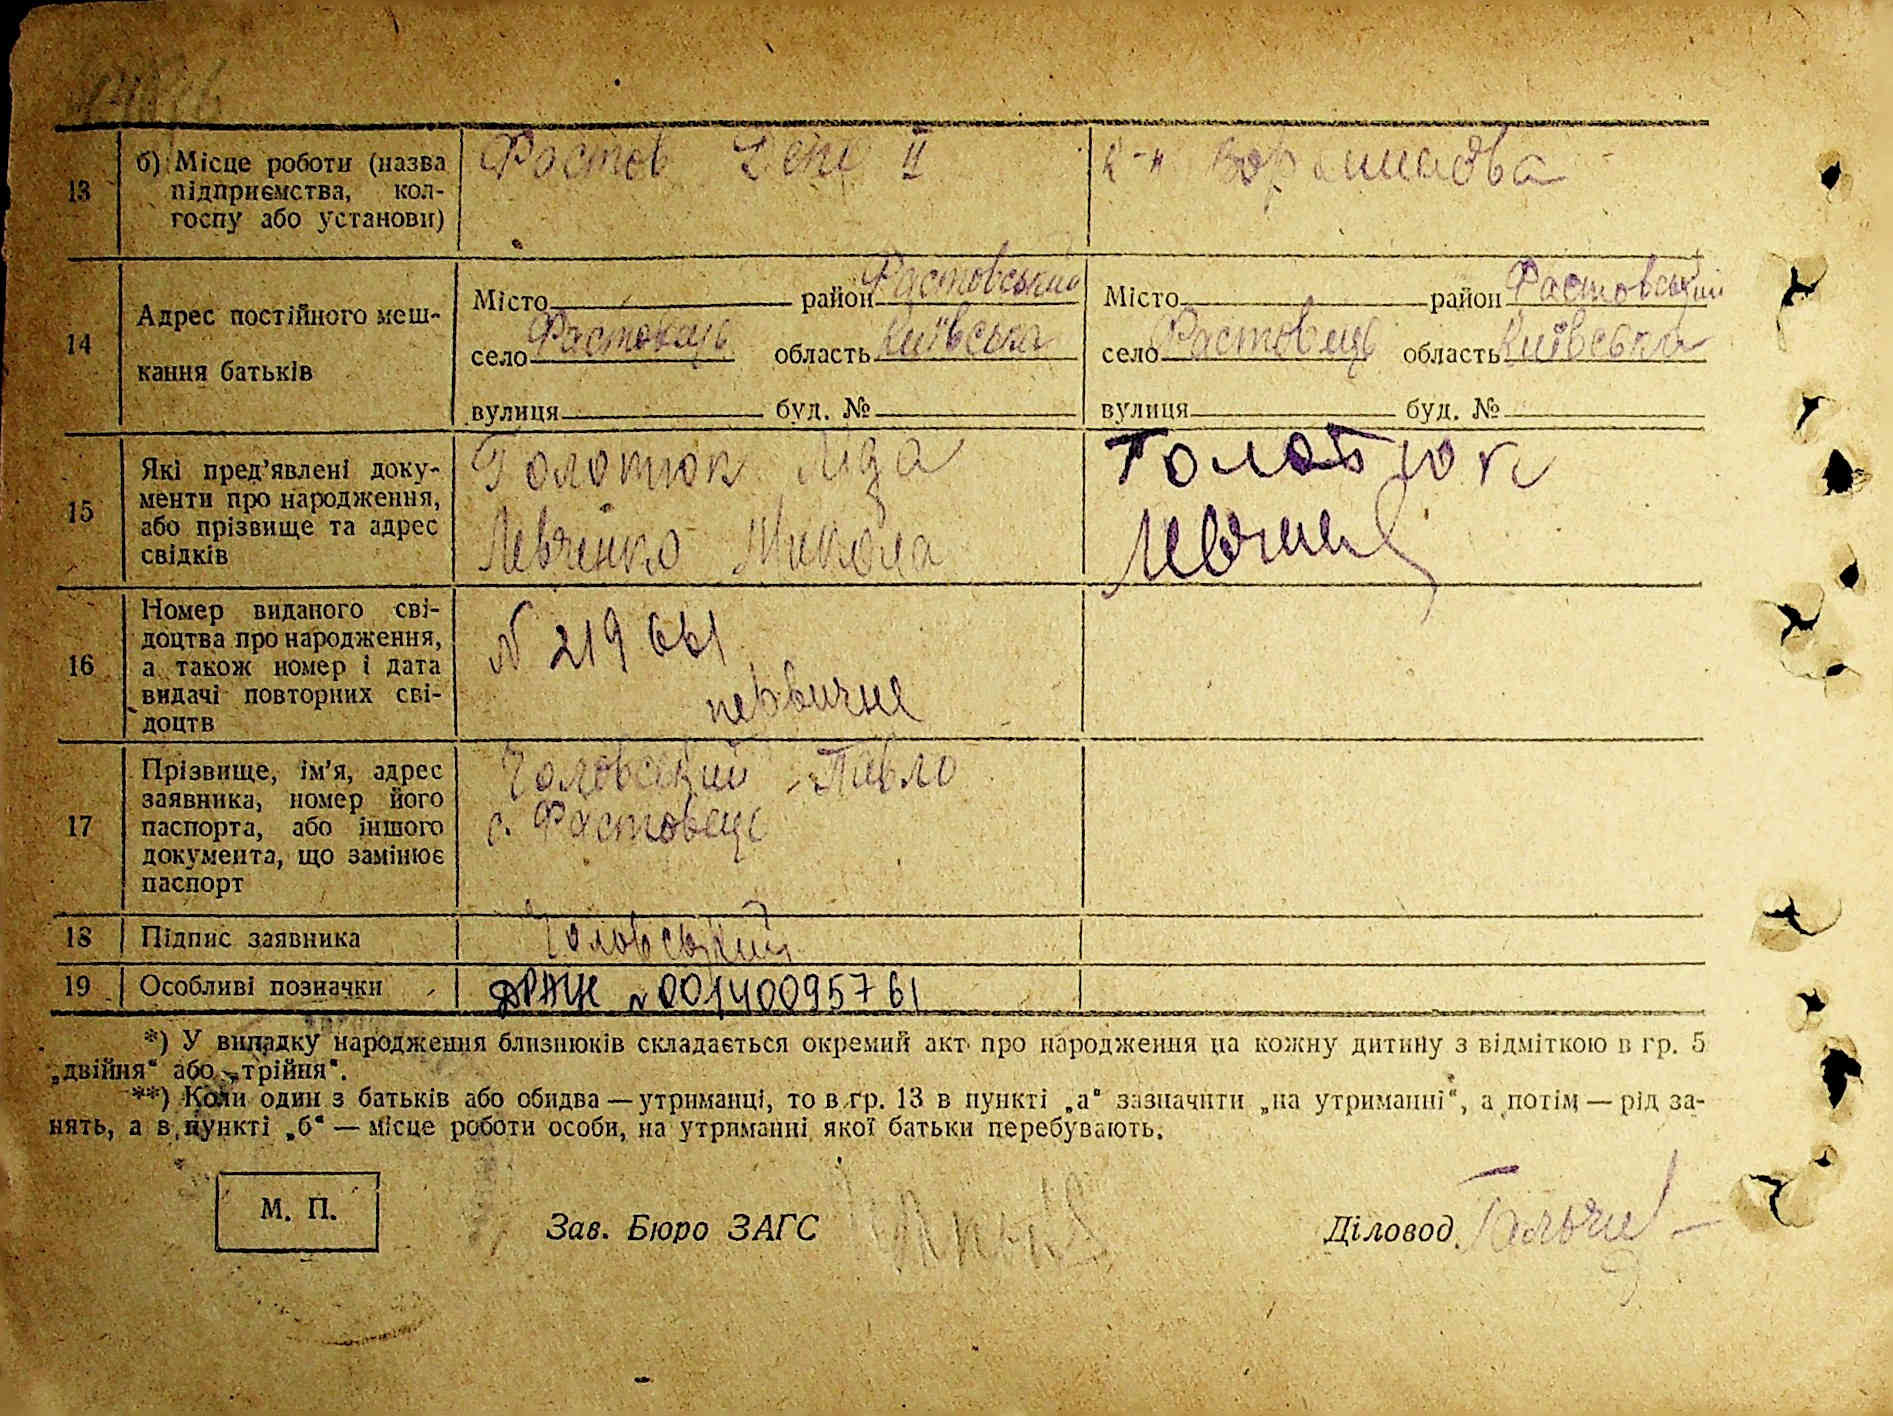 13 б) Місце роботи (назва підприємства, кол-
госпу або установи)
Фастов Депо II
к-п Ворошилова
14 Адрес постійного меш-
кання батьків
Місто район Фастовський
село Фастовець область Київська
вулиця буд. №
Місто район Фастовський
село Фастовець область Київська
вулиця буд. №
15 Які пред'явлені доку-
менти про народження,
або прізвище та адрес
свідків
Голотюк Ліда
Левченко Микола
Голотюк
16 Номер виданого сві-
доцтва про народження,
а також номер і дата
видачі повторних сві-
доцтв
№ 219661
первичне
17 Прізвище, ім'я, адрес
заявника, номер його
паспорта, або іншого
документа, що замінює
паспорт
Чоловський Павло
с. Фастовець
18 Підпис заявника
Чоловський
19 Особливі позначки
ДРАЦС №00140095761
*) У випадку народження близнюків складається окремий акт про народження на кожну дитину з відміткою в гр. 5
„двійня" або „трійня".
**) Коли один з батьків або обидва — утриманці, то в гр. 13 в пункті „а" зазначити „на утриманні", а потім — рід за-
нять, а в пункті „б" — місце роботи особи, на утриманні якої батьки перебувають.
М. П.
Зав. Бюро ЗАГС
Діловод